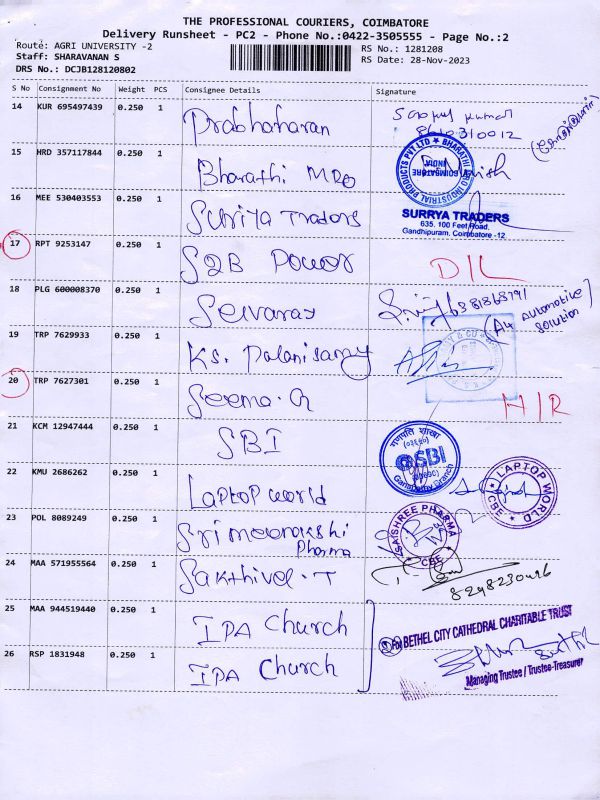 THE PROFESSIONAL COURIERS, COIMBATORE
Delivery Runsheet - PC2 - Phone No.:0422-3505555 - Page No.:2
Route: AGRI UNIVERSITY -2 RS No.: 1281208
Staff: SHARAVANAN S RS Date: 28-Nov-2023
DRS No.: DCJB128120802
S No Consignment No Weight PCS Consignee Details Signature
14 KUR 695497439 0.250 1 Prabhaharan
15 HRD 357117844 0.250 1 Bharathi MRO
BHARATHI MRO INDUSTRIAL PRODUCTS PVT LTD
COIMBATORE INDIA
16 MEE 530403553 0.250 1 Suriya Traders
SURRYA TRADERS
635, 100 Feet Road,
Gandhipuram, Coimbatore -12
17 RPT 9253147 0.250 1 S2B Power D/L
18 PLG 600008370 0.250 1 Selvaraj
(A4 Automotive Solution)
19 TRP 7629933 0.250 1 Ks. Palanisamy
20 TRP 7627301 0.250 1 Seema.G N/R
21 KCM 12947444 0.250 1 SBI
गणपति शाखा
SBI
Ganapathy Branch
22 KMU 2686262 0.250 1 Laptop world
LAPTOP WORLD
CBE
23 POL 8089249 0.250 1 Sri meenakshi
Pharma
SAISHREE PHARMA
CBE
24 MAA 571955564 0.250 1 Sakthivel.T
8248230496
25 MAA 944519440 0.250 1 IPA Church
For BETHEL CITY CATHEDRAL CHARITABLE TRUST
26 RSP 1831948 0.250 1 IPA Church
Managing Trustee / Trustee-Treasurer